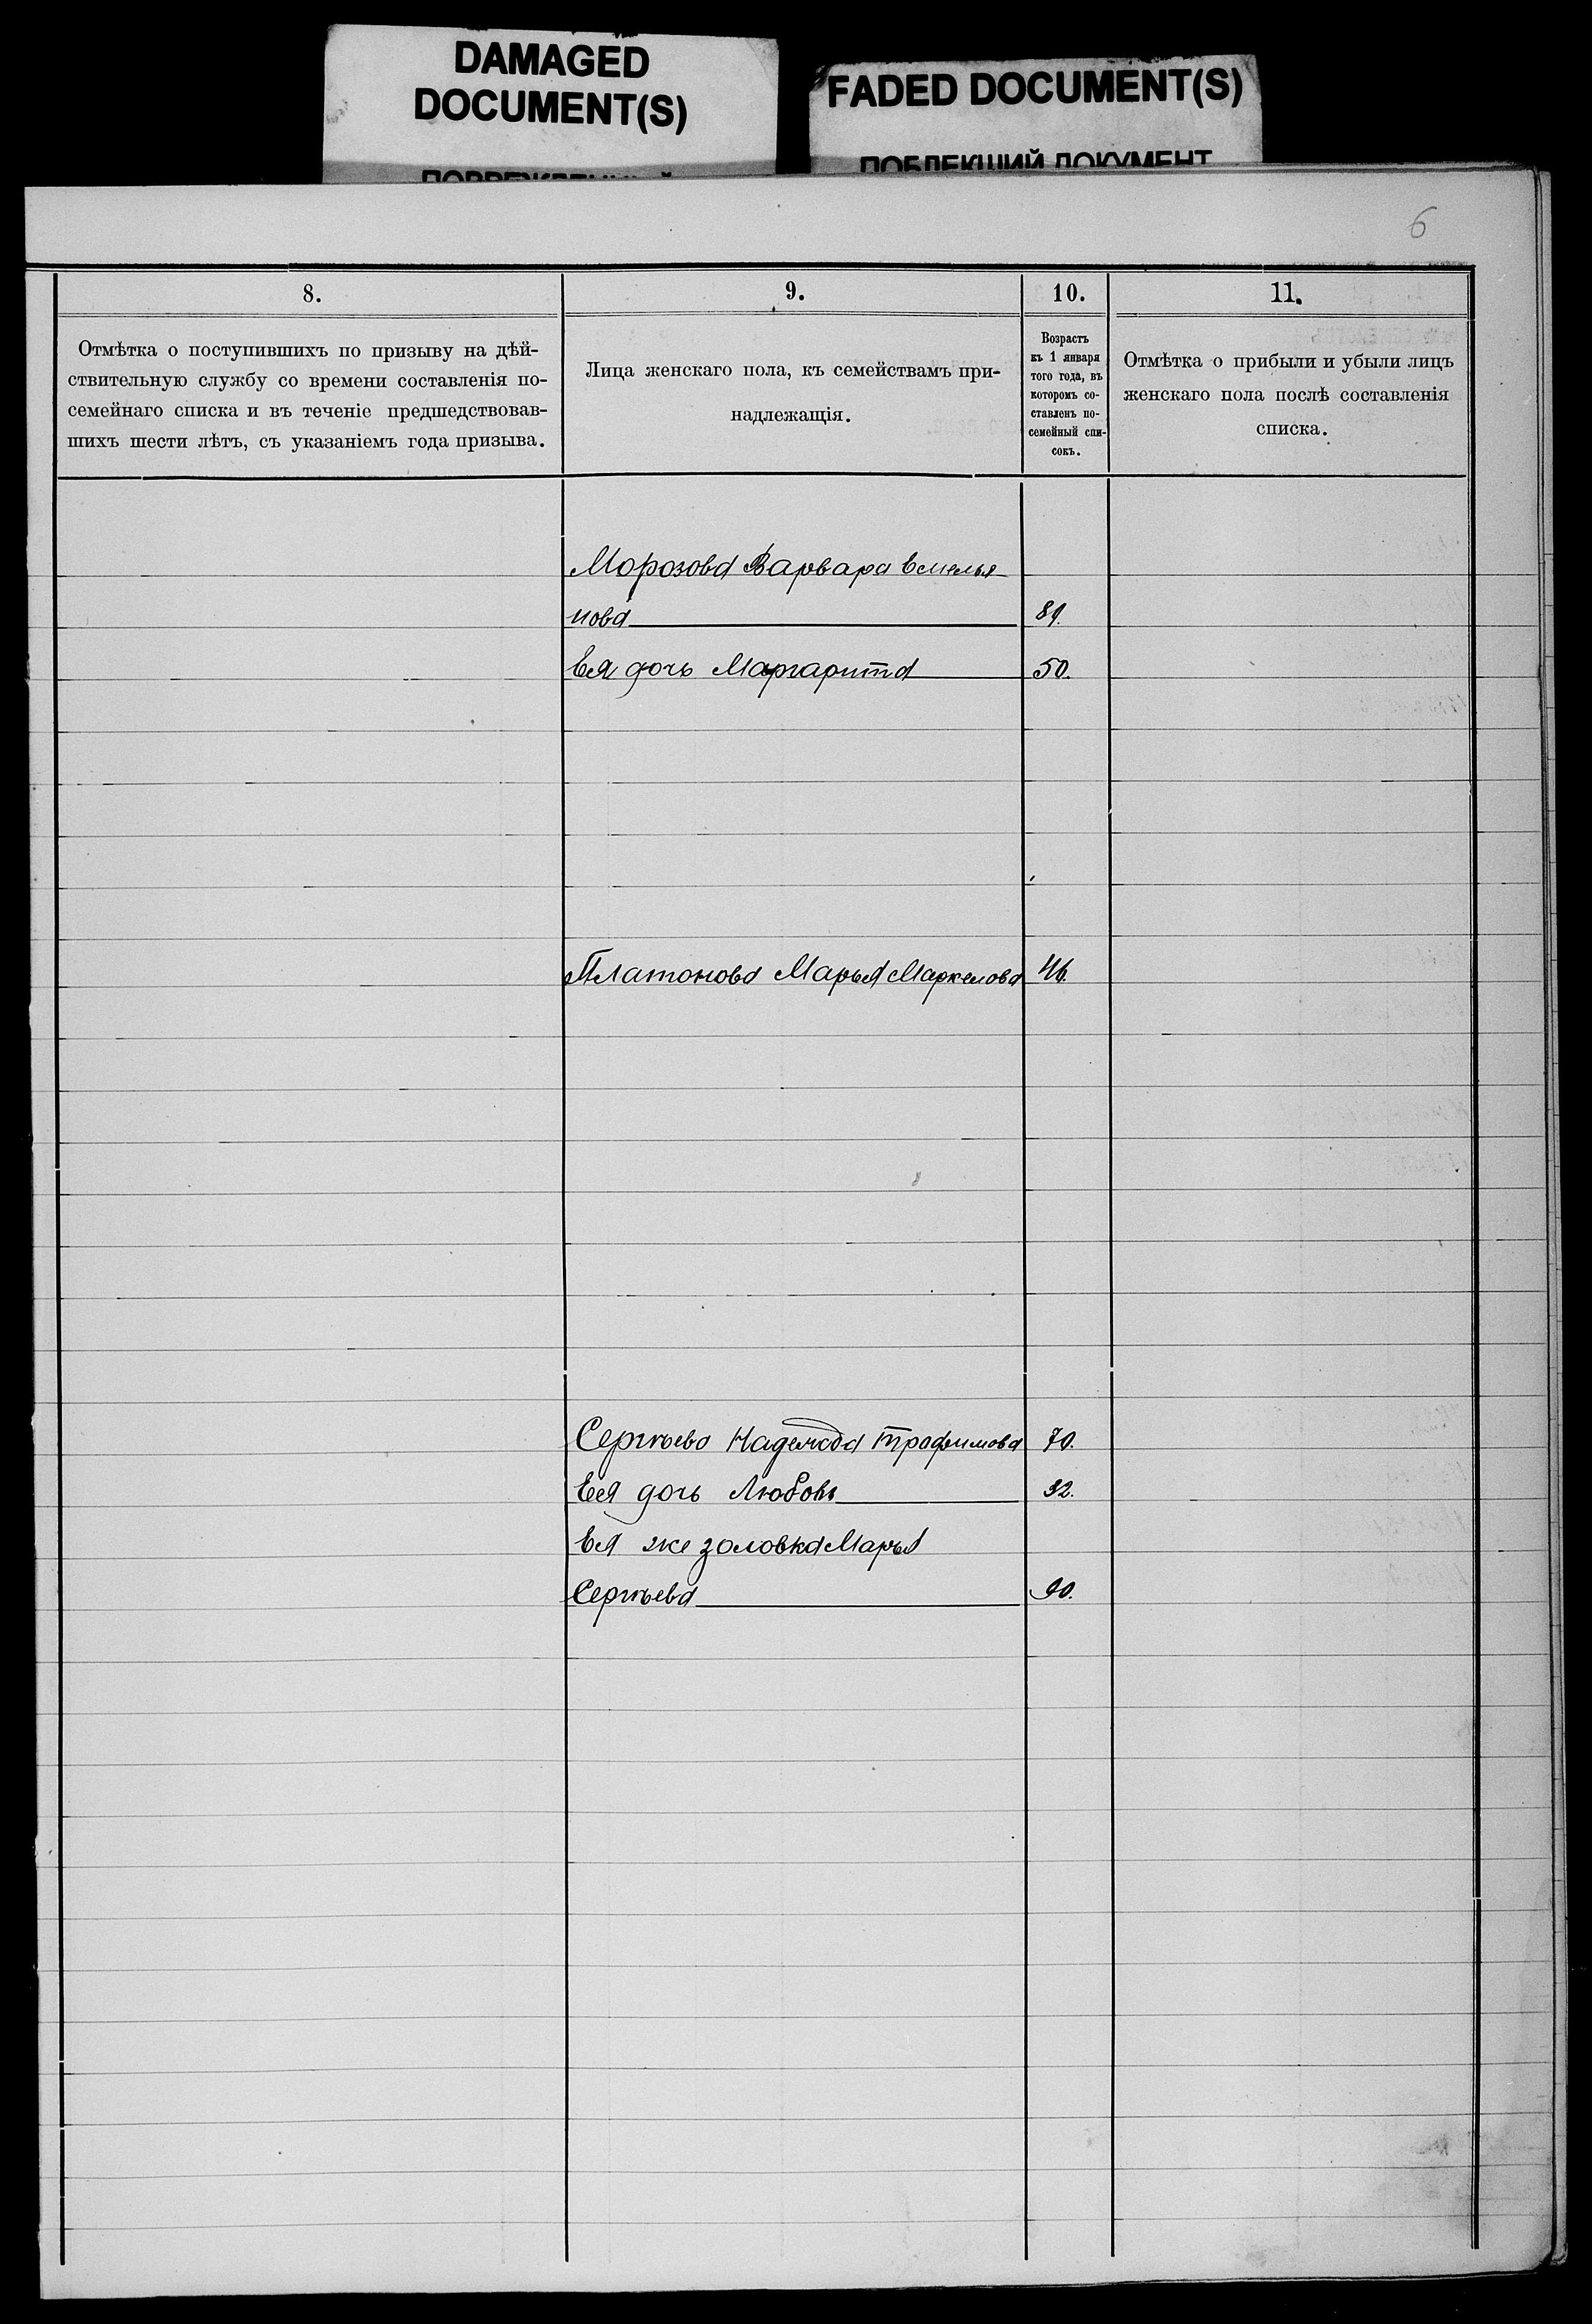 DAMAGED
DOCUMENT(S)
FADED DOCUMENT(S)
ПОБЛЕКШИЙ ДОКУМЕНТ
6
8.
9.
10.
11.
Отмѣтка о поступившихъ по призыву на дѣй-
ствительную службу со времени составленія по-
семейнаго списка и въ теченіе предшедствовав-
шихъ шести лѣтъ, съ указаніемъ года призыва.
Лица женскаго пола, къ семействамъ при-
надлежащія.
Возрастъ
къ 1 января
того года, въ
которомъ со-
ставленъ по-
семейный спи-
сокъ.
Отмѣтка о прибыли и убыли лицъ
женскаго пола послѣ составленія
списка.
Морозова Варвара Емелья-
нова
Ея дочь Маргарита 50.
Платонова Марья Маркелова 46.
Сергѣева Надежда Трофимова 70.
Ея дочь Любовь 32.
Ея же золовка Марья
Сергѣева 90.